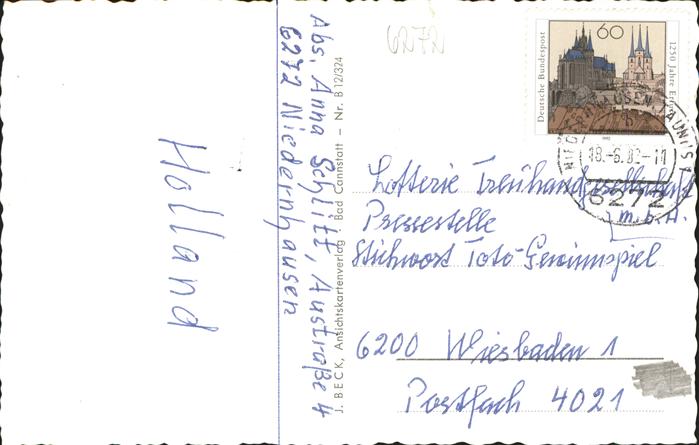 Holland
Abs. Anna Schlitt, Austraße 4
6272 Niedernhausen
J. BECK, Ansichtskartenverlag, Bad Cannstatt – Nr. B 12/324
6272
Deutsche Bundespost
60
1250 Jahre
18.-6.92-11
6272
Lotterie Treuhandgesellschaft
m.b.H.
Pressestelle
Stichwort Toto-Gewinnspiel
6200 Wiesbaden 1
Postfach 4021